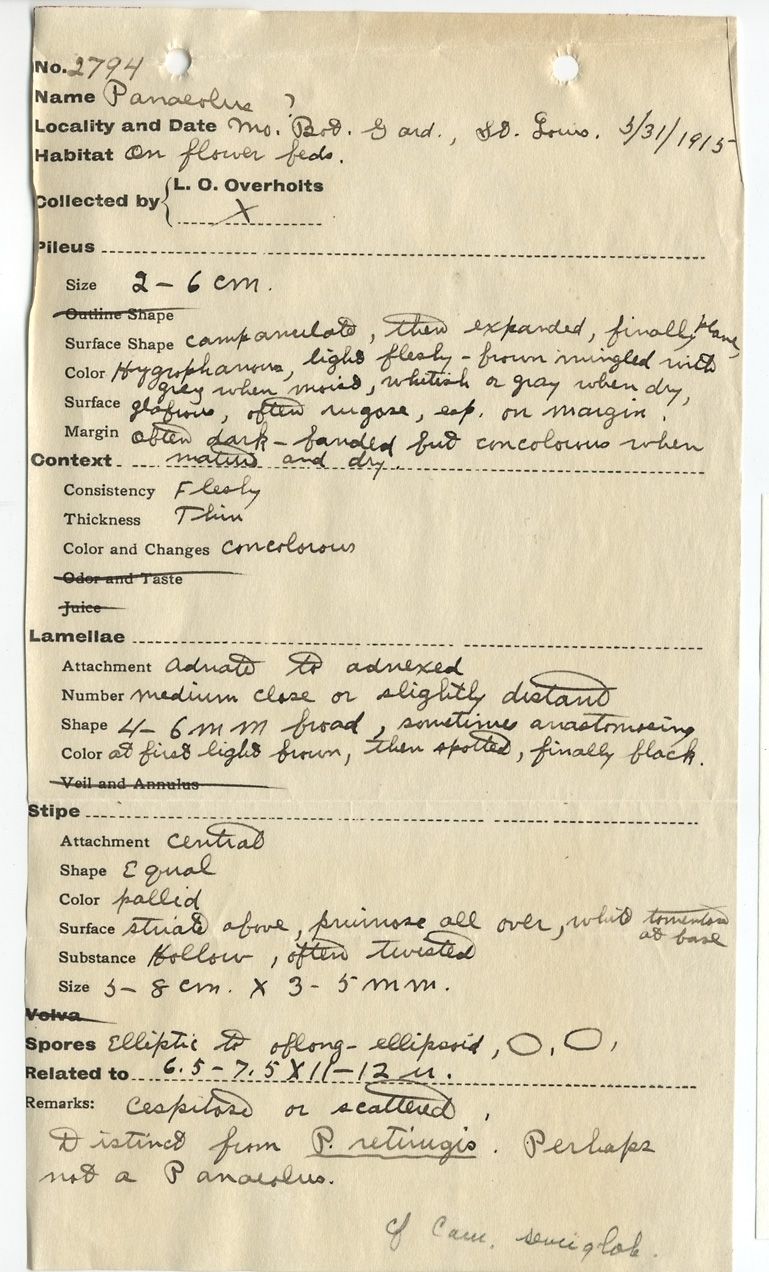 No. 2794
Name Panaeolus ?
Locality and Date Mo. Bot. Gard., St. Louis. 5/31/1915
Habitat On flower beds.
Collected by { L. O. Overholts
X
Pileus
Size 2-6 cm.
Outline Shape
Surface Shape campanulate, then expanded, finally plane,
Color Hygrophanous, light fleshy-brown mingled with
grey when moist, whitish or gray when dry,
Surface glabrous, often rugose, esp. on margin.
Margin often dark-banded but concolorous when
Context mature and dry.
Consistency Fleshy
Thickness Thin
Color and Changes concolorous
Odor and Taste
Juice
Lamellae
Attachment adnate to adnexed
Number medium close or slightly distant
Shape 4-6 mm broad, sometimes anastomosing
Color at first light brown, then spotted, finally black.
Veil and Annulus
Stipe
Attachment central
Shape Equal
Color pallid
Surface striate above, pruinose all over, white tomentose
at base
Substance Hollow, often twisted
Size 5-8 cm. X 3-5 mm.
Volva
Spores Elliptic to oblong-ellipsoid,
Related to 6.5-7.5 X 11-12 u.
Remarks: Cespitose or scattered,
Distinct from P. retirugis. Perhaps
not a Panaeolus.
cf semiglob.